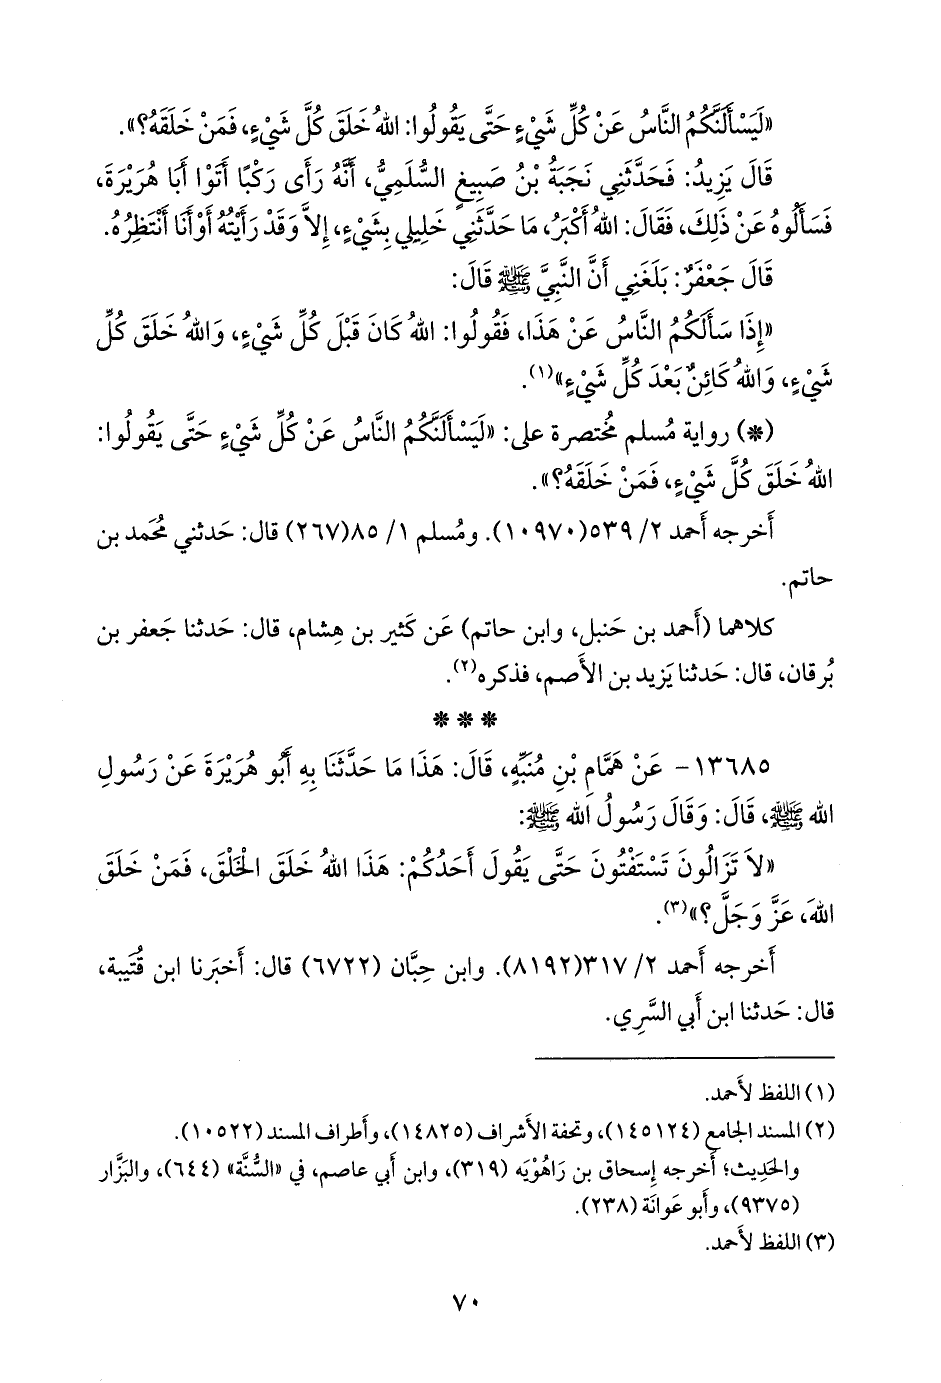 «لَيَسْأَلَنَّكُمُ النَّاسُ عَنْ كُلِّ شَيْءٍ حَتَّى يَقُولُوا: اللهُ خَلَقَ كُلَّ شَيْءٍ، فَمَنْ خَلَقَهُ؟».
قَالَ يَزِيدُ: فَحَدَّثَنِي نَجَبَةُ بْنُ صَبِيغٍ السُّلَمِيُّ، أَنَّهُ رَأَى رَكْبًا أَتَوْا أَبَا هُرَيْرَةَ،
فَسَأَلُوهُ عَنْ ذَلِكَ، فَقَالَ: اللهُ أَكْبَرُ، مَا حَدَّثَنِي خَلِيلِي بِشَيْءٍ، إِلاَّ وَقَدْ رَأَيْتُهُ أَوْ أَنَا أَنْتَظِرُهُ.
قَالَ جَعْفَرٌ: بَلَغَنِي أَنَّ النَّبِيَّ ﷺ قَالَ:
«إِذَا سَأَلَكُمُ النَّاسُ عَنْ هَذَا، فَقُولُوا: اللهُ كَانَ قَبْلَ كُلِّ شَيْءٍ، وَاللهُ خَلَقَ كُلَّ
شَيْءٍ، وَاللهُ كَائِنٌ بَعْدَ كُلِّ شَيْءٍ»(١).
(*) رواية مُسلم مُختصرة على: «لَيَسْأَلَنَّكُمُ النَّاسُ عَنْ كُلِّ شَيْءٍ حَتَّى يَقُولُوا:
اللهُ خَلَقَ كُلَّ شَيْءٍ، فَمَنْ خَلَقَهُ؟».
أَخرجه أَحمد ٢/ ٥٣٩(١٠٩٧٠). ومُسلم ١/ ٨٥(٢٦٧) قال: حَدثني مُحمد بن
حاتم.
كلاهما (أَحمد بن حَنبل، وابن حاتم) عَن كَثير بن هِشام، قال: حَدثنا جَعفر بن
بُرقان، قال: حَدثنا يَزيد بن الأَصم، فذكره(٢).
* * *
١٣٦٨٥- عَنْ هَمَّامِ بْنِ مُنَبِّهٍ، قَالَ: هَذَا مَا حَدَّثَنَا بِهِ أَبُو هُرَيْرَةَ عَنْ رَسُولِ
الله ﷺ، قَالَ: وَقَالَ رَسُولُ الله ﷺ:
«لاَ تَزَالُونَ تَسْتَفْتُونَ حَتَّى يَقُولَ أَحَدُكُمْ: هَذَا اللهُ خَلَقَ الْخَلْقَ، فَمَنْ خَلَقَ
اللهَ، عَزَّ وَجَلَّ؟»(٣).
أَخرجه أَحمد ٢/ ٣١٧(٨١٩٢). وابن حِبَّان (٦٧٢٢) قال: أَخبَرنا ابن قُتَيبة،
قال: حَدثنا ابن أَبي السَّرِي.
(١) اللفظ لأَحمد.
(٢) المسند الجامع (١٤٥١٢٤)، وتحفة الأَشراف (١٤٨٢٥)، وأَطراف المسند (١٠٥٢٢).
والحَدِيث؛ أَخرجه إِسحاق بن رَاهُوْيَه (٣١٩)، وابن أَبي عاصم، في «السُّنَّة» (٦٤٤)، والبَزَّار
(٩٣٧٥)، وأَبو عَوانَة (٢٣٨).
(٣) اللفظ لأَحمد.
٧٠